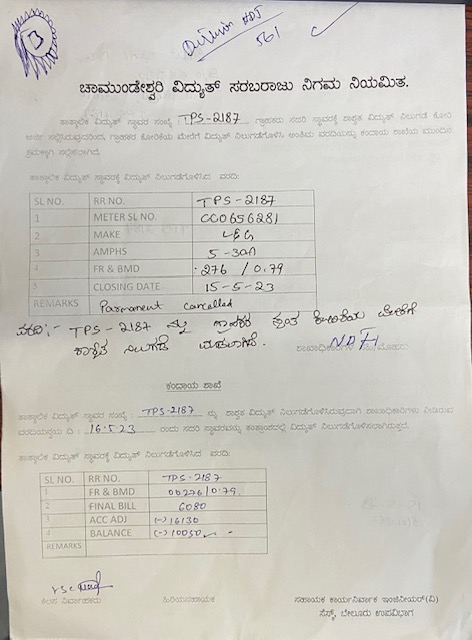 3
561
ಚಾಮುಂಡೇಶ್ವರಿ ವಿದ್ಯುತ್ ಸರಬರಾಜು ನಿಗಮ ನಿಯಮಿತ.
ತಾತ್ಕಾಲಿಕ ವಿದ್ಯುತ್ ಸ್ಥಾವರ ಸಂಖ್ಯೆ TPS-2187 ಗ್ರಾಹಕರು ಸದರಿ ಸ್ಥಾವರಕ್ಕೆ ಶಾಶ್ವತ ವಿದ್ಯುತ್ ನಿಲುಗಡೆ ಕೋರಿ
ಅರ್ಜಿ ಸಲ್ಲಿಸಿರುವುದರಿಂದ, ಗ್ರಾಹಕರ ಕೋರಿಕೆಯ ಮೇರೆಗೆ ವಿದ್ಯುತ್ ನಿಲುಗಡೆಗೊಳಿಸಿ ಅಂತಿಮ ವರದಿಯನ್ನು ಕಂದಾಯ ಶಾಖೆಯ ಮುಂದಿನ
ಕ್ರಮಕ್ಕಾಗಿ ಸಲ್ಲಿಸಲಾಗಿದೆ.
ತಾತ್ಕಾಲಿಕ ವಿದ್ಯುತ್ ಸ್ಥಾವರಕ್ಕೆ ವಿದ್ಯುತ್ ನಿಲುಗಡೆಗೊಳಿಸಿದ ವರದಿ:
SL NO. RR NO. TPS-2187
1 METER SL NO. CC0656281
2 MAKE L&G
3 AMPHS 5-30A
4 FR & BMD 276 / 0.79
5 CLOSING DATE 15-5-23
REMARKS Parmanent cancelled
ವರದಿ:- TPS-2187 ನ್ನು ಗ್ರಾಹಕರ ಸ್ವಂತ ಕೋರಿಕೆಯ ಮೇರೆಗೆ
ಶಾಶ್ವತ ನಿಲುಗಡೆ ಮಾಡಲಾಗಿದೆ.
ಕಂದಾಯ ಶಾಖೆ
ತಾತ್ಕಾಲಿಕ ವಿದ್ಯುತ್ ಸ್ಥಾವರ ಸಂಖ್ಯೆ : TPS-2187 ನ್ನು ಶಾಶ್ವತ ವಿದ್ಯುತ್ ನಿಲುಗಡೆಗೊಳಿಸಿರುವುದಾಗಿ ಶಾಖಾಧಿಕಾರಿಗಳು ನೀಡಿರುವ
ವರದಿಯನ್ವಯ ದಿ : 16.5.23 ರಂದು ಸದರಿ ಸ್ಥಾವರವನ್ನು ವಿದ್ಯುತ್ ನಿಲುಗಡೆಗೊಳಿಸಲಾಗಿರುತ್ತದೆ.
ತಾತ್ಕಾಲಿಕ ವಿದ್ಯುತ್ ಸ್ಥಾವರಕ್ಕೆ ವಿದ್ಯುತ್ ನಿಲುಗಡೆಗೊಳಿಸಿದ ವರದಿ:
SL NO. RR NO. TPS-2187
1 FR & BMD 00276/0.79
2 FINAL BILL 6080
3 ACC ADJ (-) 16130
4 BALANCE (-) 10050
REMARKS
ಕೆಲಸ ನಿರ್ವಾಹಕರು ಹಿರಿಯಸಹಾಯಕ ಸಹಾಯಕ ಕಾರ್ಯನಿರ್ವಾಹಕ ಇಂಜಿನೀಯರ್(ವಿ)
ಸೆಸ್ಕ್, ಬೇಲೂರು ಉಪವಿಭಾಗ